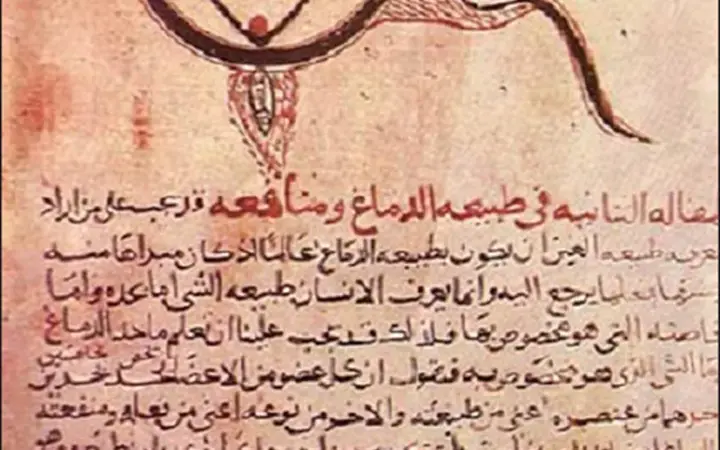 مقاله الثانيه في طبيعه الدماغ ومنافعه قد يجب على من اراد
طبيعه العين ان يكون بطبيعه الدماغ عالما اذ كان مبداها منه
يرجع اليه وانما يعرف الانسان طبيعه الشي اما بحده واما
التي هو مخصوص بها فلذلك قد يجب علينا ان نعلم ما حد الدماغ
الشي الذي هو مخصوص به فنقول ان كل عضو من الاعضا يحد بحدين
من عنصره اعني من طبيعته والاخر من نوعه اعني من فعله ومنفعته